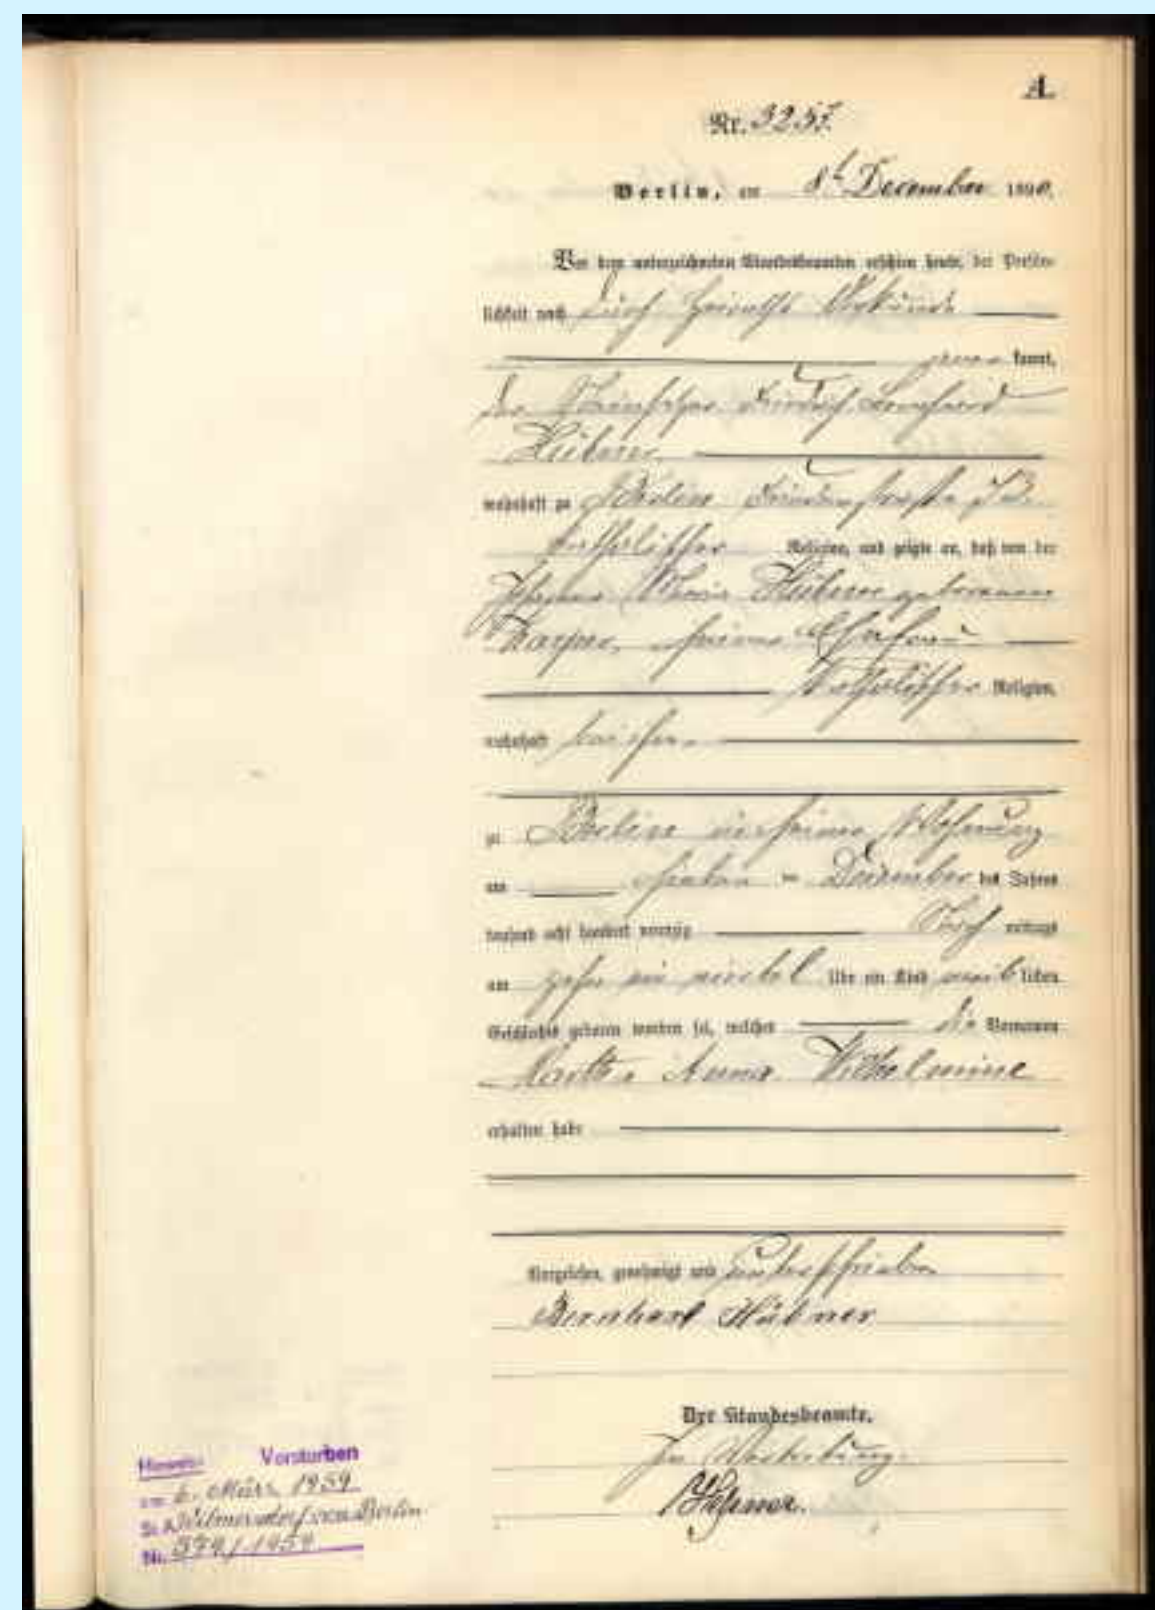 A.
Nr. 3257.
Berlin, am 8t December 1890.
Vor dem unterzeichneten Standesbeamten erschien heute, der Persön-
lichkeit nach durch Heiraths Urkunde
kannt,
der Steinsetzer Friedrich Bernhard
Hübner
wohnhaft zu Berlin
katholischer Religion, und zeigte an, daß von der
Marie Hübner geborenen
seiner Ehefrau
katholischer Religion,
wohnhaft bei ihm
zu Berlin in seiner Wohnung
am sieben ten December des Jahres
tausend acht hundert neunzig Nach mittags
um zehn ein viertel Uhr ein Kind weib lichen
Geschlechts geboren worden sei, welches die Vornamen
Martha Anna Wilhelmine
erhalten habe
Vorgelesen, genehmigt und unterschrieben
Bernhard Hübner
Der Standesbeamte.
In Vertretung.
Hinweis: Verstorben
am 6. März 1959
St. A. Wilmersdorf von Berlin
Nr. 579/1959